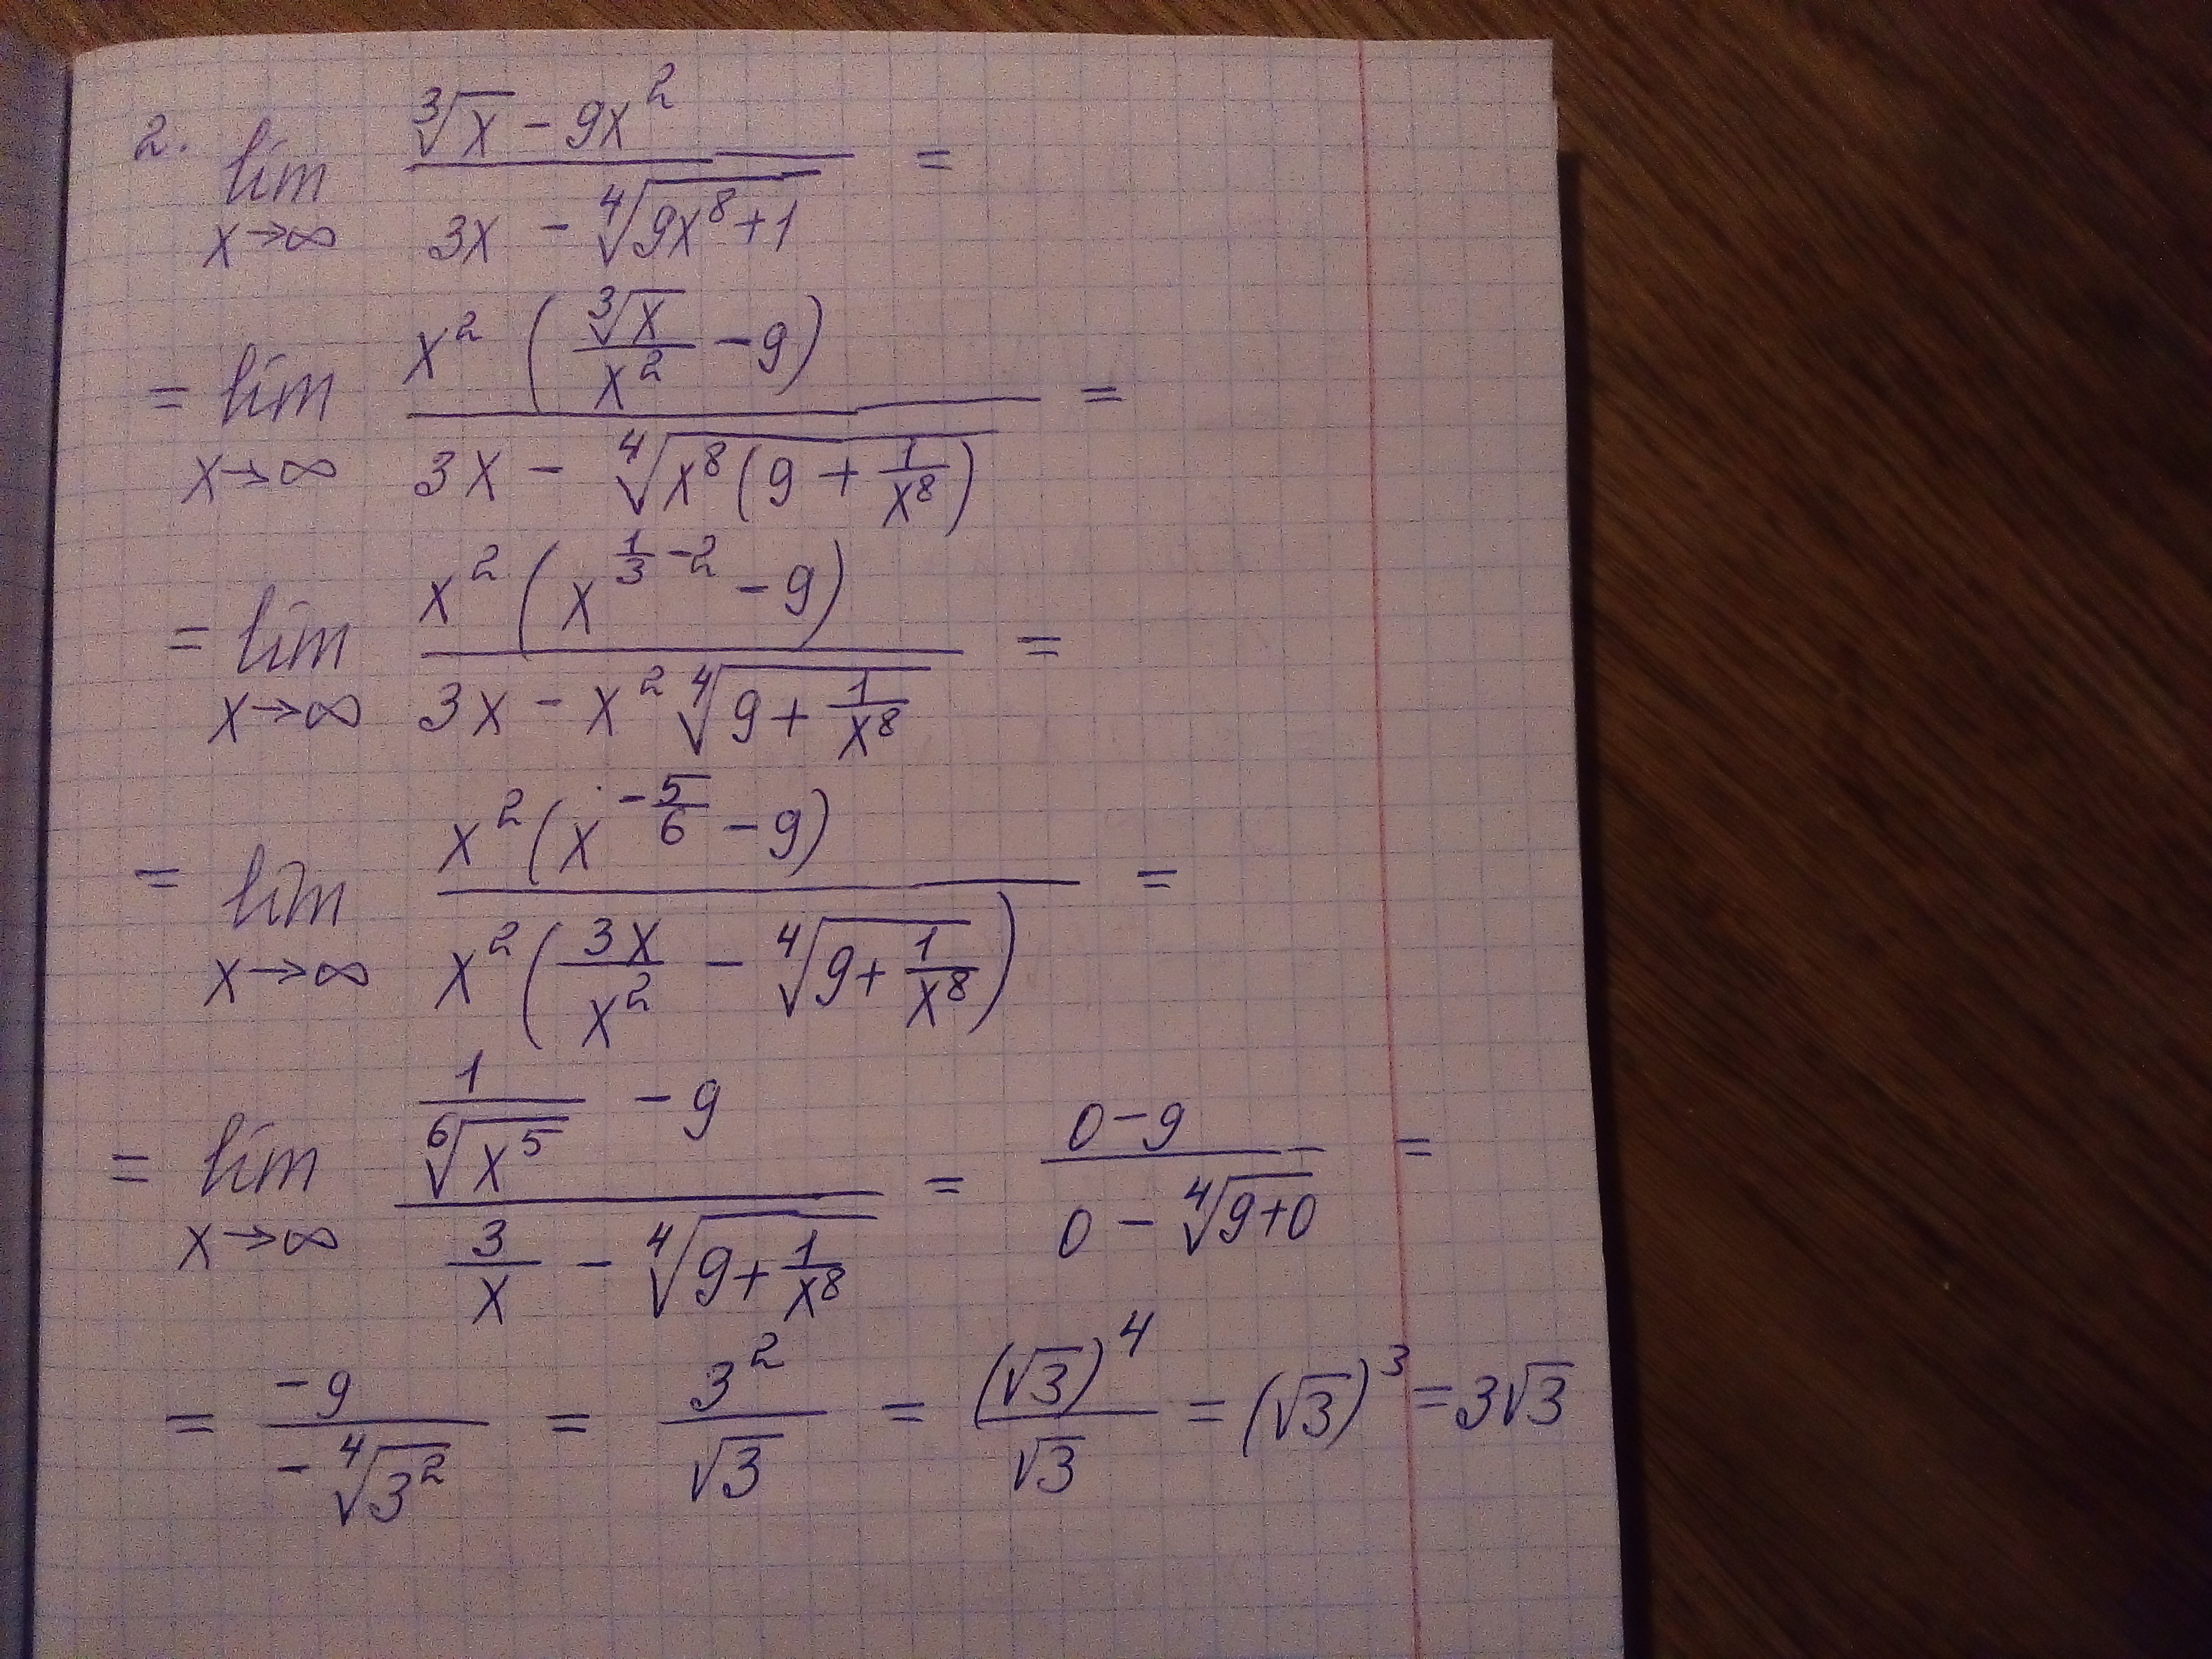 2. lim x→∞ (∛x - 9x²)/(3x - ∜(9x⁸+1)) =
= lim x→∞ (x² (∛x/x² - 9))/(3x - ∜(x⁸(9 + 1/x⁸))) =
= lim x→∞ (x² (x^(1/3 - 2) - 9))/(3x - x² ∜(9 + 1/x⁸)) =
= lim x→∞ (x² (x^(-5/6) - 9))/(x² (3x/x² - ∜(9 + 1/x⁸))) =
= lim x→∞ (1/⁶√(x⁵) - 9)/(3/x - ∜(9 + 1/x⁸)) = (0 - 9)/(0 - ∜(9+0)) =
= -9/(-∜(3²)) = 3²/√3 = (√3)⁴/√3 = (√3)³ = 3√3